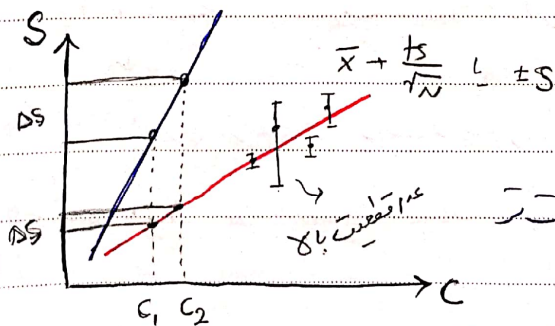 S
x̄ + ts/√N یا ± S
ΔS
ΔS
عدم قطعیت بالا
C₁ C₂ C